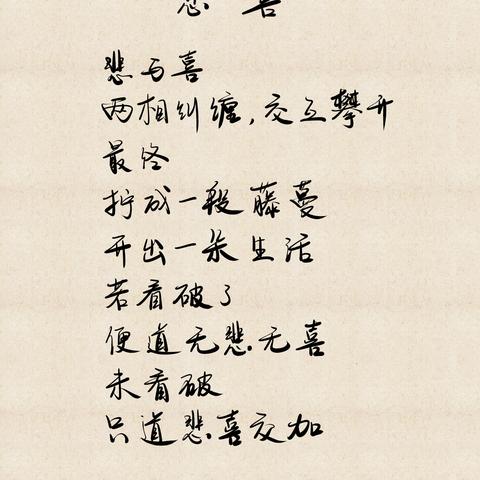 悲 喜
悲与喜
两相纠缠,交互攀升
最终
拧成一段藤蔓
开出一朵生活
若看破了
便道无悲无喜
未看破
只道悲喜交加